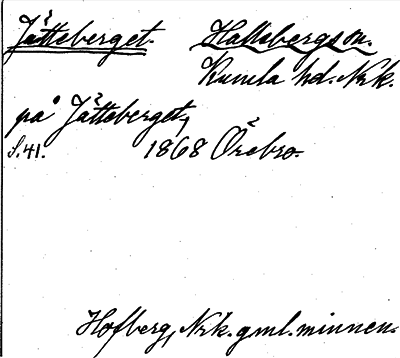 Jätteberget. Hallsbergs sn.
Kumla hd. Nrk.
på Jätteberget,
S. 41. 1868 Örebro.
Hofberg, Nrk. gml. minnen.